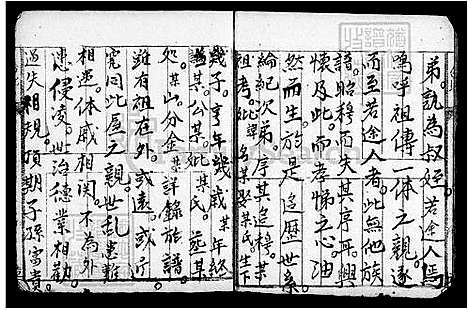 弟孰為叔姪若途人焉
嗚呼祖傳一体之親遂
而至若途人者。此無他族
譜。昭穆而失其序耳。興
懷及此。而孝悌之心。油
然而生。於是追歷世系。
綸紀次弟。序其
祖考。妣某名某娶某氏。生下
幾子。享年幾歲。某年終
諡某。公某。妣某氏。葬某
处。某山分金。某詳錄於譜。
雖有祖在外。或遠。或
究同此屋之親。世乱患難
相連。体戚相関。不為外
患侵凌。世治德業相勸
過失相規。預期子孫富貴